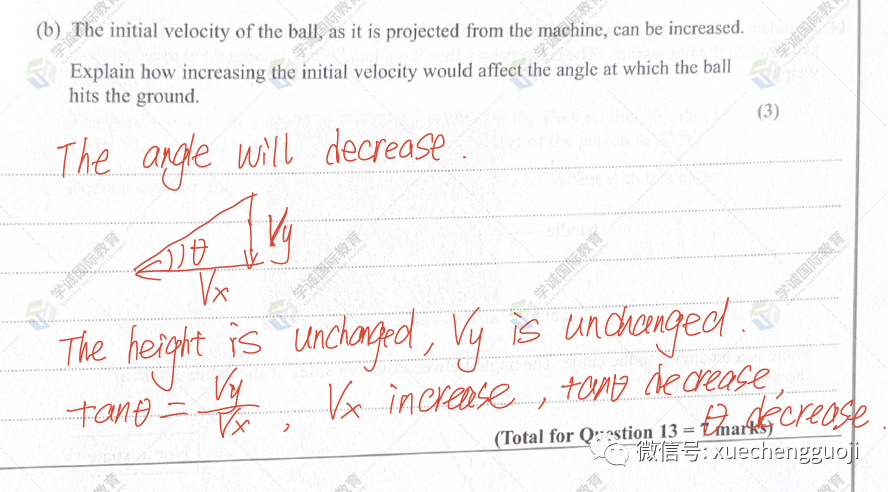 (b) The initial velocity of the ball, as it is projected from the machine, can be increased.
Explain how increasing the initial velocity would affect the angle at which the ball
hits the ground.
(3)
The angle will decrease.
θ
Vy
Vx
The height is unchanged, Vy is unchanged.
tanθ = Vy/Vx, Vx increase, tanθ decrease,
θ decrease.
(Total for Question 13 = 7 marks)
微信号: xuechengguoji
学诚国际教育